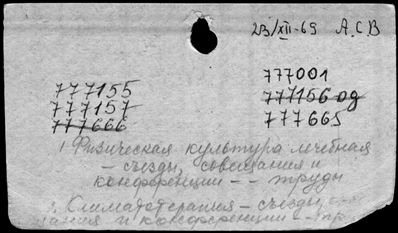 23/XII-69 A.C.B
777155
777157
777666
777001
777156 од
777665
1 Физическая культура лечебная
– съезды, совещания и
конференции – – труды
2. Климатотерапия – съезды,
и конференции –